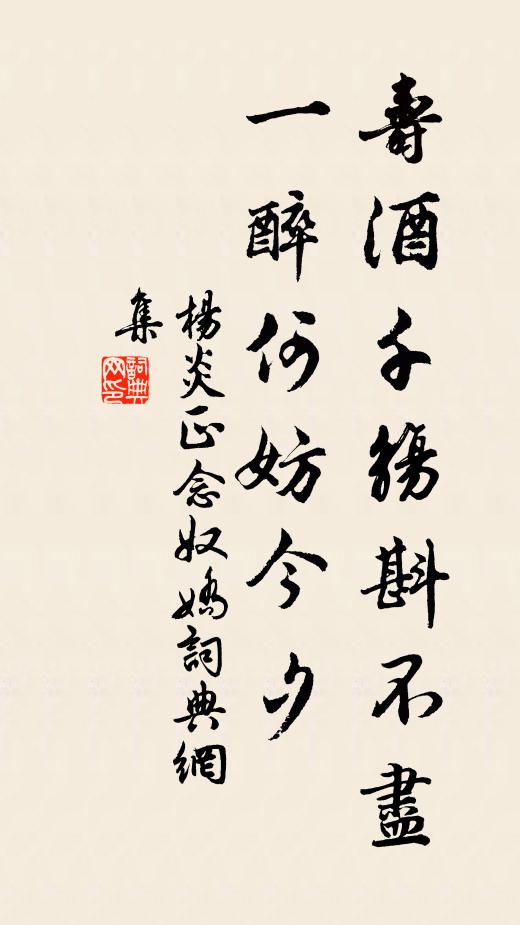 壽酒千觴斟不盡
一醉何妨今夕
楊炎正念奴嬌詞典網
集
詞典
网印